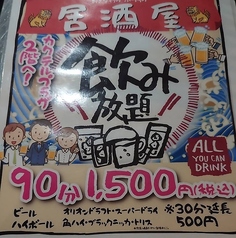 居酒屋
カクテルグラスが
2階へ!
飲み
放題
ALL
YOU CAN
DRINK
90分1,500円(税込)
ビール オリオンドラフト・スーパードライ
ハイボール 角ハイ・ブラックニッカ・トリス
※30分延長
500円